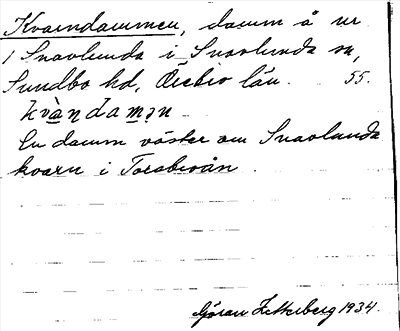 Kvarndammen, damm å nr
1 Snavlunda i Snavlunda sn,
Sundbo hd, Örebro län. 55.
kvà̱ṇdamən
En damm väster om Snavlunda
kvarn i Torsbroån.
Göran Zetterberg 1934.